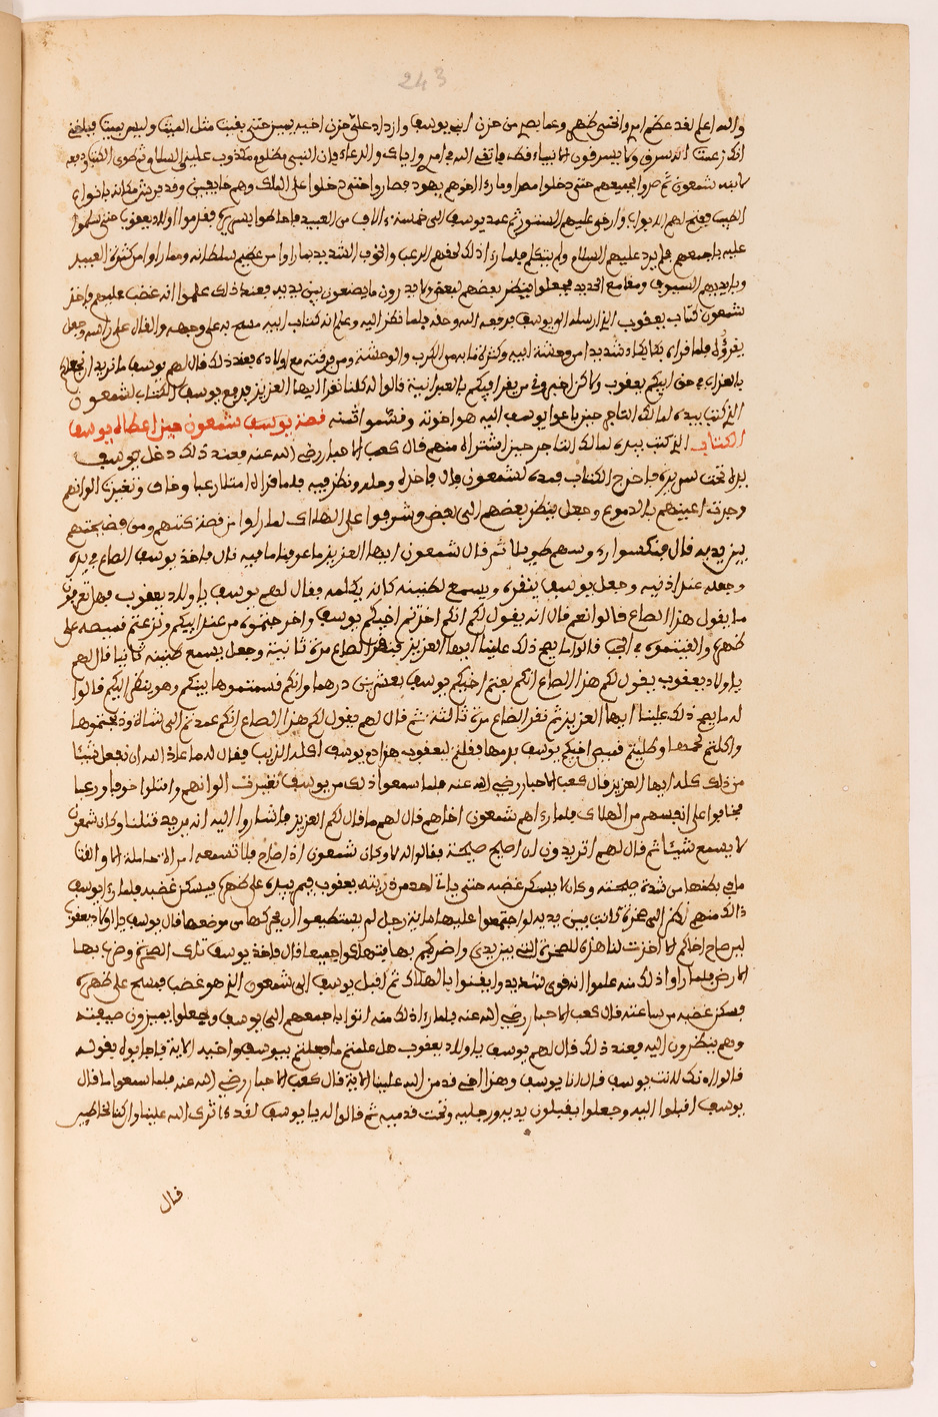 243
والله اعلم لقد عظم امري وانحنى ظهري وعما بصري من حزن ابني يوسف وازداد علي حزن اخيه يمين حتى بقيت مثل الميت وليس بميت فبلغني
انك زعمت انه سرق ولا يسرفون الانبياء قط فاتقي الله في امري واياك والدعاء فان النبي مظلوم مكذوب عليه والسلام ثم طوى الكتاب ودفعه
لابنه شمعون ثم مروا بجميعهم حتى دخلوا مصر وما راء اخوهم يهود فصاروا حتى دخلوا على الملك وهم خايفين وقد فرش مكانه بانواع
الطيب ففتح لهم الابواب وارخى عليهم الستور ثم عمد يوسف الى خمسة ءالاف من العبيد فاحاطوا بسريره فقدموا اولاد يعقوب حتى سلموا
عليه باجمعهم فلم يرد عليهم السلام ولم يتكلم فلما راء اذلك لحقهم الرعب والخوف الشديد بما راوا من عظيم سلطانه ومما راوا من كثرة العبيد
وبايديهم السيوف ومقامع الحديد فجعلوا ينظر بعضهم لبعض ولا يدرون ما يصنعون بين يديه فعند ذلك علموا انه غضب عليهم فاخذ
شمعون كتاب يعقوب الذي ارسله الى يوسف فرفعه اليه وحله فلما نظر اليه وعلم انه كتاب ابيه مسح به على وجهه والقاه على راسه وجعل
يقرؤه فلما قراه بكا بكاء شديدا من وحشة ابيه وكثرة ما به من الكرب والوحشة ومن فرقته مع اولاده فعند ذلك قال لهم يوسف ما تريد ان نجعل
بالعزاء في حق ابيكم يعقوب ولاكن اخبروني من يقرا فيكم بالعبرانية قالوا له كلنا نقرا ايها العزيز فدفع يوسف الكتاب لشمعون
الذي كتب بيده لمالك التاجر حين باعوا يوسف اليه هو اخوته وقسموا ثمنه قصة يوسف شمعون حين اعطاه يوسف
الكتاب الذي كتب بيده لمالك التاجر حين اشتراه منهم قال كعب الاحبار رضي الله عنه فعند ذلك دخل يوسف
يده تحت سريره فاخرج الكتاب فمده لشمعون قال فاخذه وحله ونظر فيه فلما قراه امتلا رعبا وخاف وتغيرت الوانهم
وجرت اعينهم بالدموع وجعل ينظر بعضهم الى بعض وشرفوا على الهلاك لما راوا من قصة كتبهم ومن فضيحتهم
بين يديه قال فنكسوا روسهم طويلا ثم قال شمعون ايها العزيز ما عرفنا ما فيه قال فاخذ يوسف الصاع في يده
وجعله عند اذنيه وجعل يوسف ينقره ويسمع لطنينه كانه يكلمه فقال لهم يوسف يا ولاد يعقوب فهل تعرفون
ما يقول هذا الصاع قالوا نعم قال انه يقول لكم انكم اخذتم اخيكم يوسف واخرجتموه من عند ابيكم ونزعتم قميصه على
ظهره والقيتموه في الجب قالوا ما يصح ذلك علينا ايها العزيز فنقر الصاع مرة ثانية وجعل يسمع طنينه ثانيا قال لهم
يا ولاد يعقوب يقول لكم هذا الصاع انكم بعتم اخيكم يوسف بعشرين درهما وانكم قسمتموها بينكم وهو ينظر اليكم قالوا
له ما يصح ذلك علينا ايها العزيز ثم نقر الصاع مرة ثالثة ثم قال لهم يقول لكم هذا الصاع انكم عمدتم الى شاة وذبحتموها
واكلتم لحمها وطليتم قميص اخيكم يوسف بدمها فقلتم ليعقوب هذا دم يوسف اكله الذيب فقال له معاذ الله ان نفعل شيئا
من ذلك كله ايها العزيز قال كعب الاحبار رضي الله عنه فلما سمعوا ذلك من يوسف تغيرت الوانهم وامتلوا خوفا ورعبا
فخافوا على انفسهم من الهلاك فلما راءهم شمعون اخاهم قال لهم ما قال لكم العزيز فاشاروا اليه انه يريد قتلنا وكان شمعون
لا يسمع شيئا ثم قال لهم اتريدون ان اصيح صيحة فقالوا له لا وكان شمعون اذا صاح فلا تسمعه امراة حاملة الا والقت
ما في بطنها من شدة صيحته وكان لا يسكن غضبه حتى ياتي احد من ذرية يعقوب فيمر بيده على ظهره فيسكن غضبه فلما راء يوسف
ذالك منهم نظر الى صخرة كانت بين يديه لو اجتمعوا عليها ماية رجل لم يستطيعوا ان يحركها من موضعها قال يوسف يا اولاد يعقوب
لين صاح اخاكم لاخذت لنا هذه الصخرة التي بين يدي واضربكم بها فتهلكوا جميعا قال فاخذ يوسف تلك الصخرة وضرب بها
الارض فلما راوا ذلك منه علموا انه قوي شديد وايقنوا بالهلاك ثم اقبل يوسف الى شمعون الذي هو غضب فمسح على ظهره
فسكن غضبه من ساعته قال كعب الاحبار رضي الله عنه فلما راء اذلك منه اتوا باجمعهم الى يوسف وجعلوا يميزون صيغته
وهم ينظرون اليه فعند ذلك قال لهم يوسف يا ولاد يعقوب هل علمتم ما فعلتم بيوسف واخيه الاية فاجابوه بقولهم
قالوا انك لانت يوسف قال انا يوسف وهذا اخي قد من الله علينا الاية قال كعب الاحبار رضي الله عنه فلما سمعوا ما قال
يوسف اقبلوا اليه وجعلوا يقبلون يديه ورجليه وتحت قدميه ثم قالوا له يا يوسف لقد ءاثرك الله علينا وان كنا لخاطين
قال